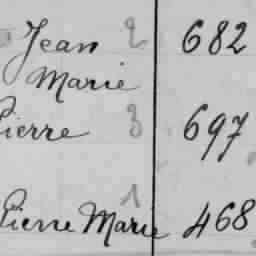 Jean 2 682
Marie
Pierre 3 697
Pierre Marie 1 468